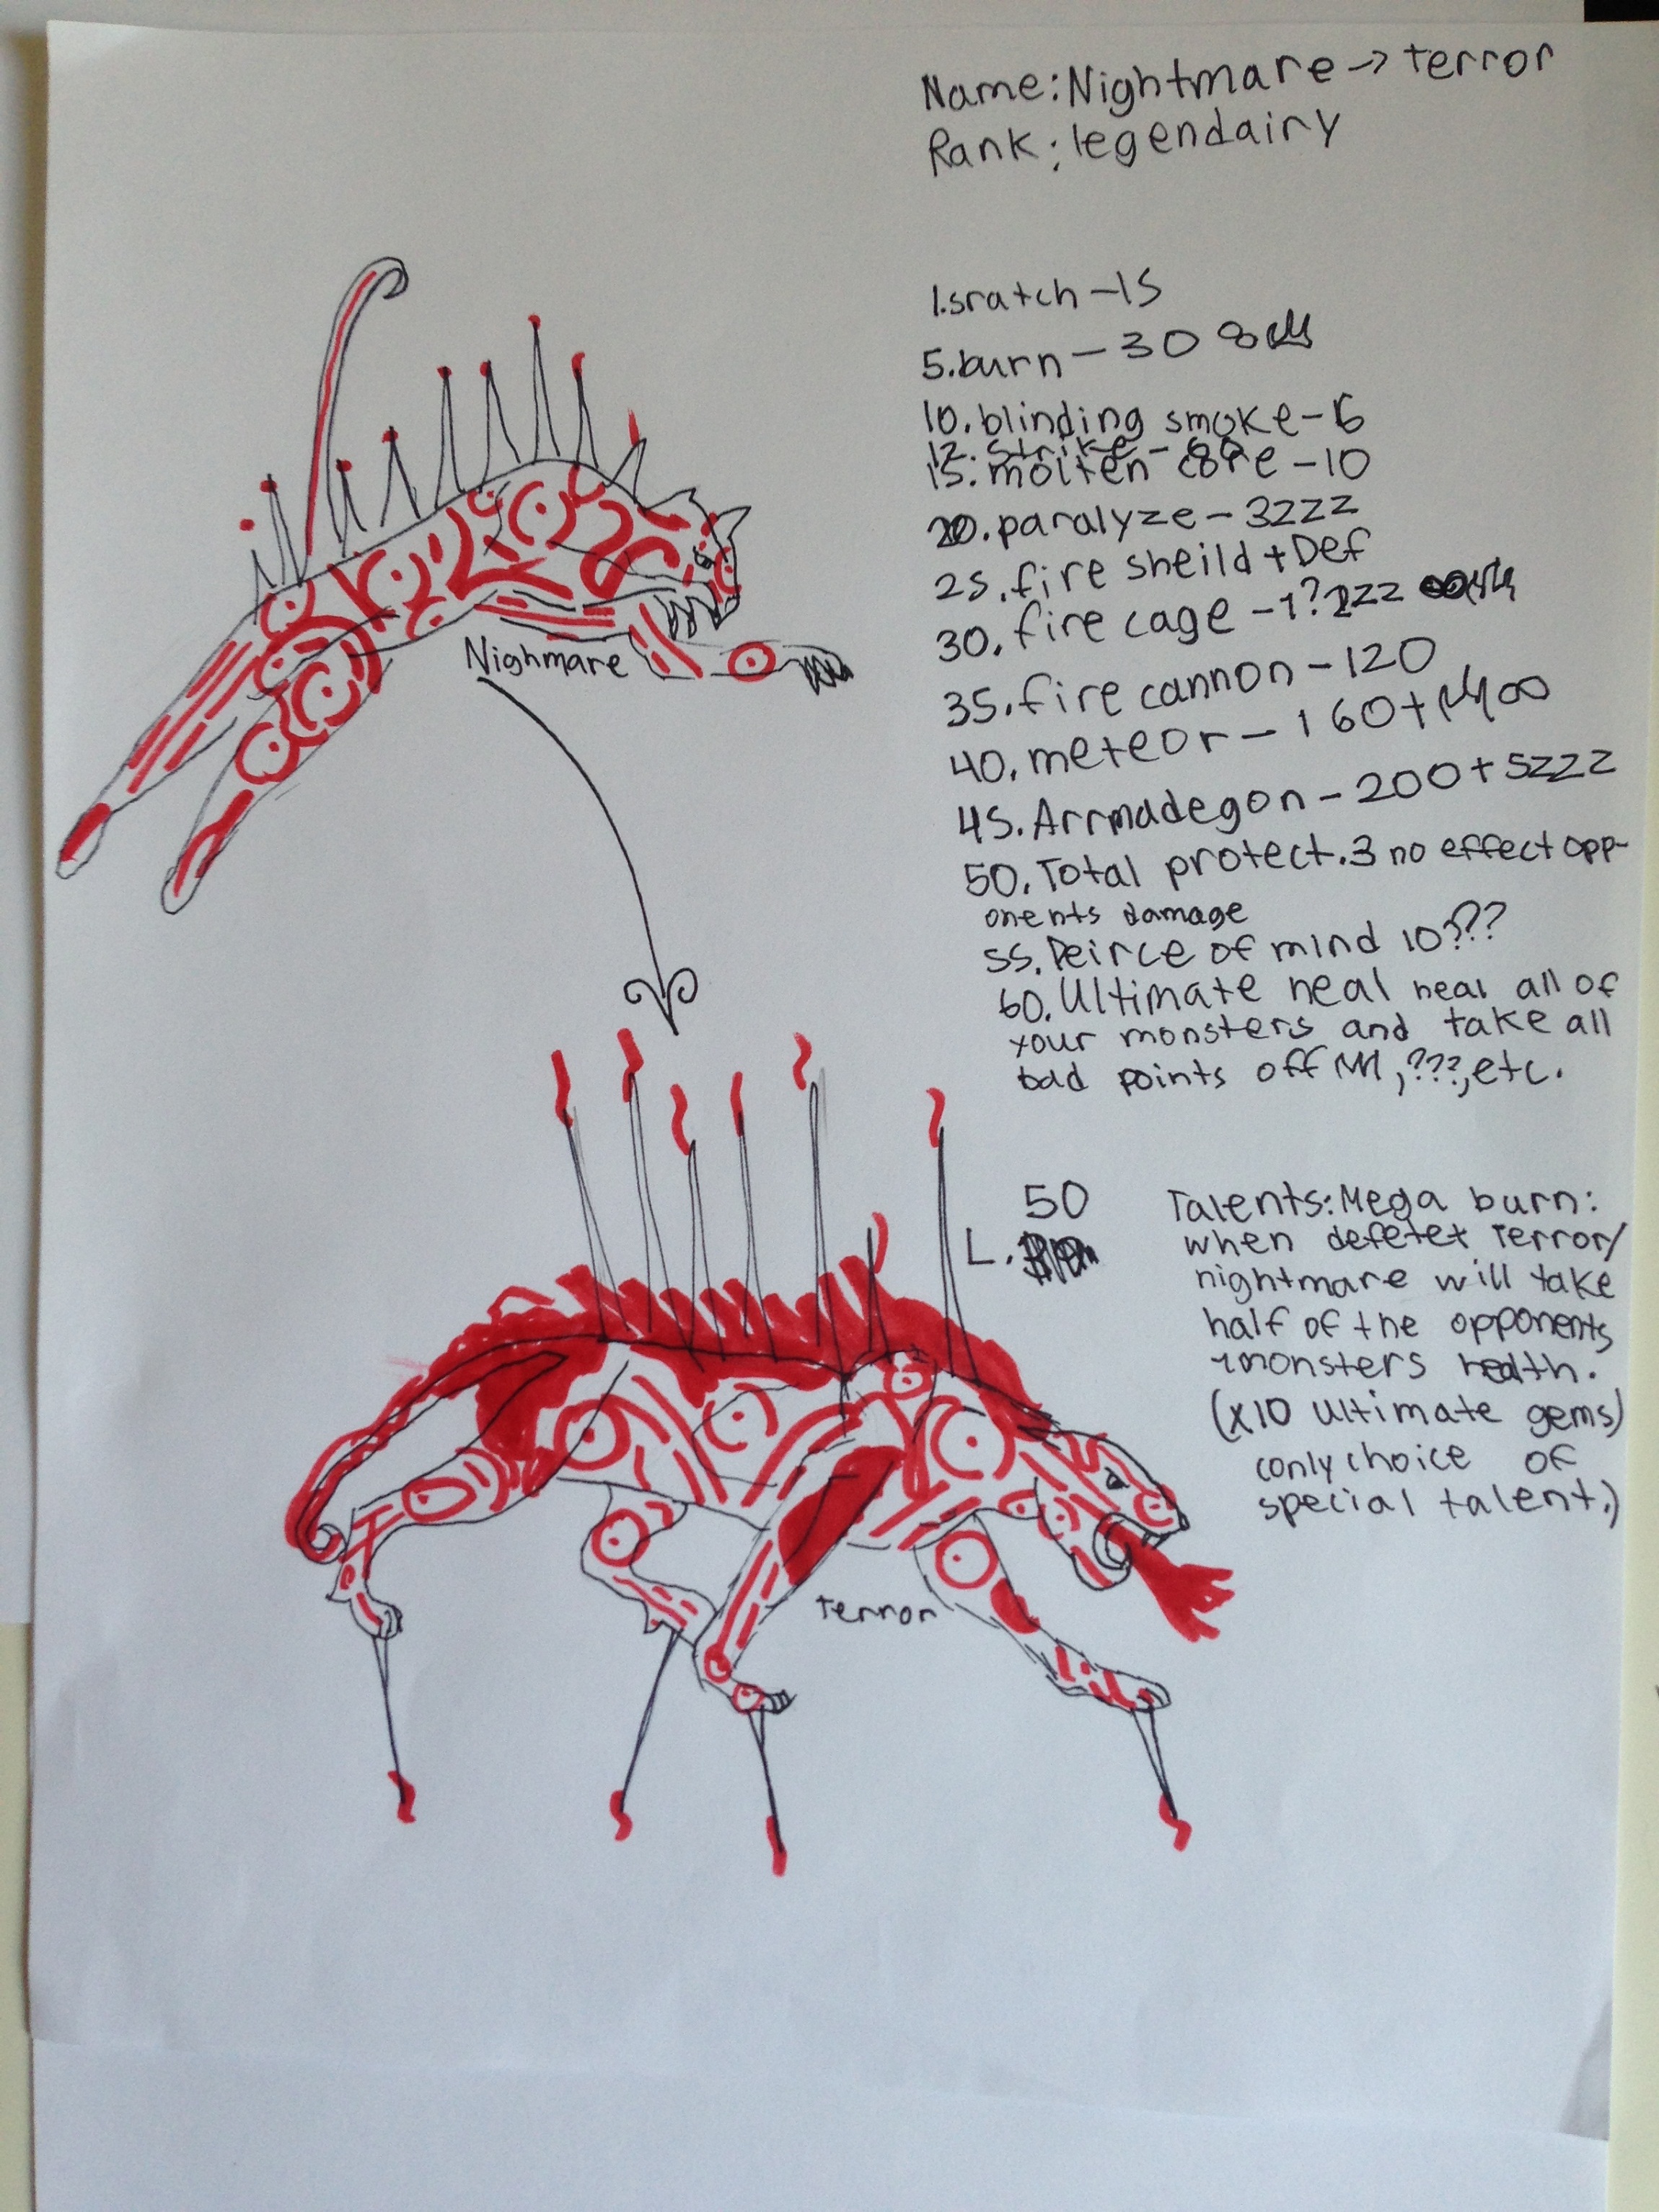 Name: Nightmare → terror
Rank: legendairy
1. sratch - 15
5. burn - 30
10. blinding smoke - 6
12. strike -
15. molten core - 10
20. paralyze - 3zzz
25. fire sheild + Def
30. fire cage - 1? 2zz
35. fire cannon - 120
40. meteor - 160 +
45. Arrmadegon - 200 + 5zzz
50. Total protect. 3 no effect opp-
onents damage
55. Peirce of mind 10???
60. Ultimate heal heal all of
your monsters and take all
bad points off , ???, etc.
Nighmare
50
L.
Talents: Mega burn:
when defetet Terror/
nightmare will take
half of the opponents
monsters health.
(x10 Ultimate gems)
(only choice of
special talent.)
terror